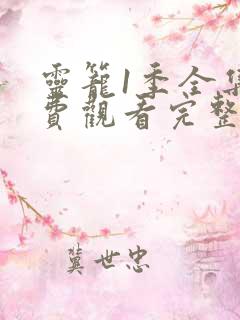 靈籠1季全集
費觀看完整
冀世忠